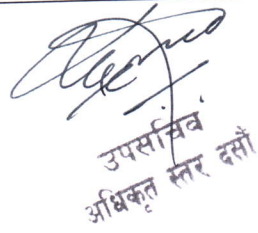 उपसचिव
अधिकृत स्तर दसौं